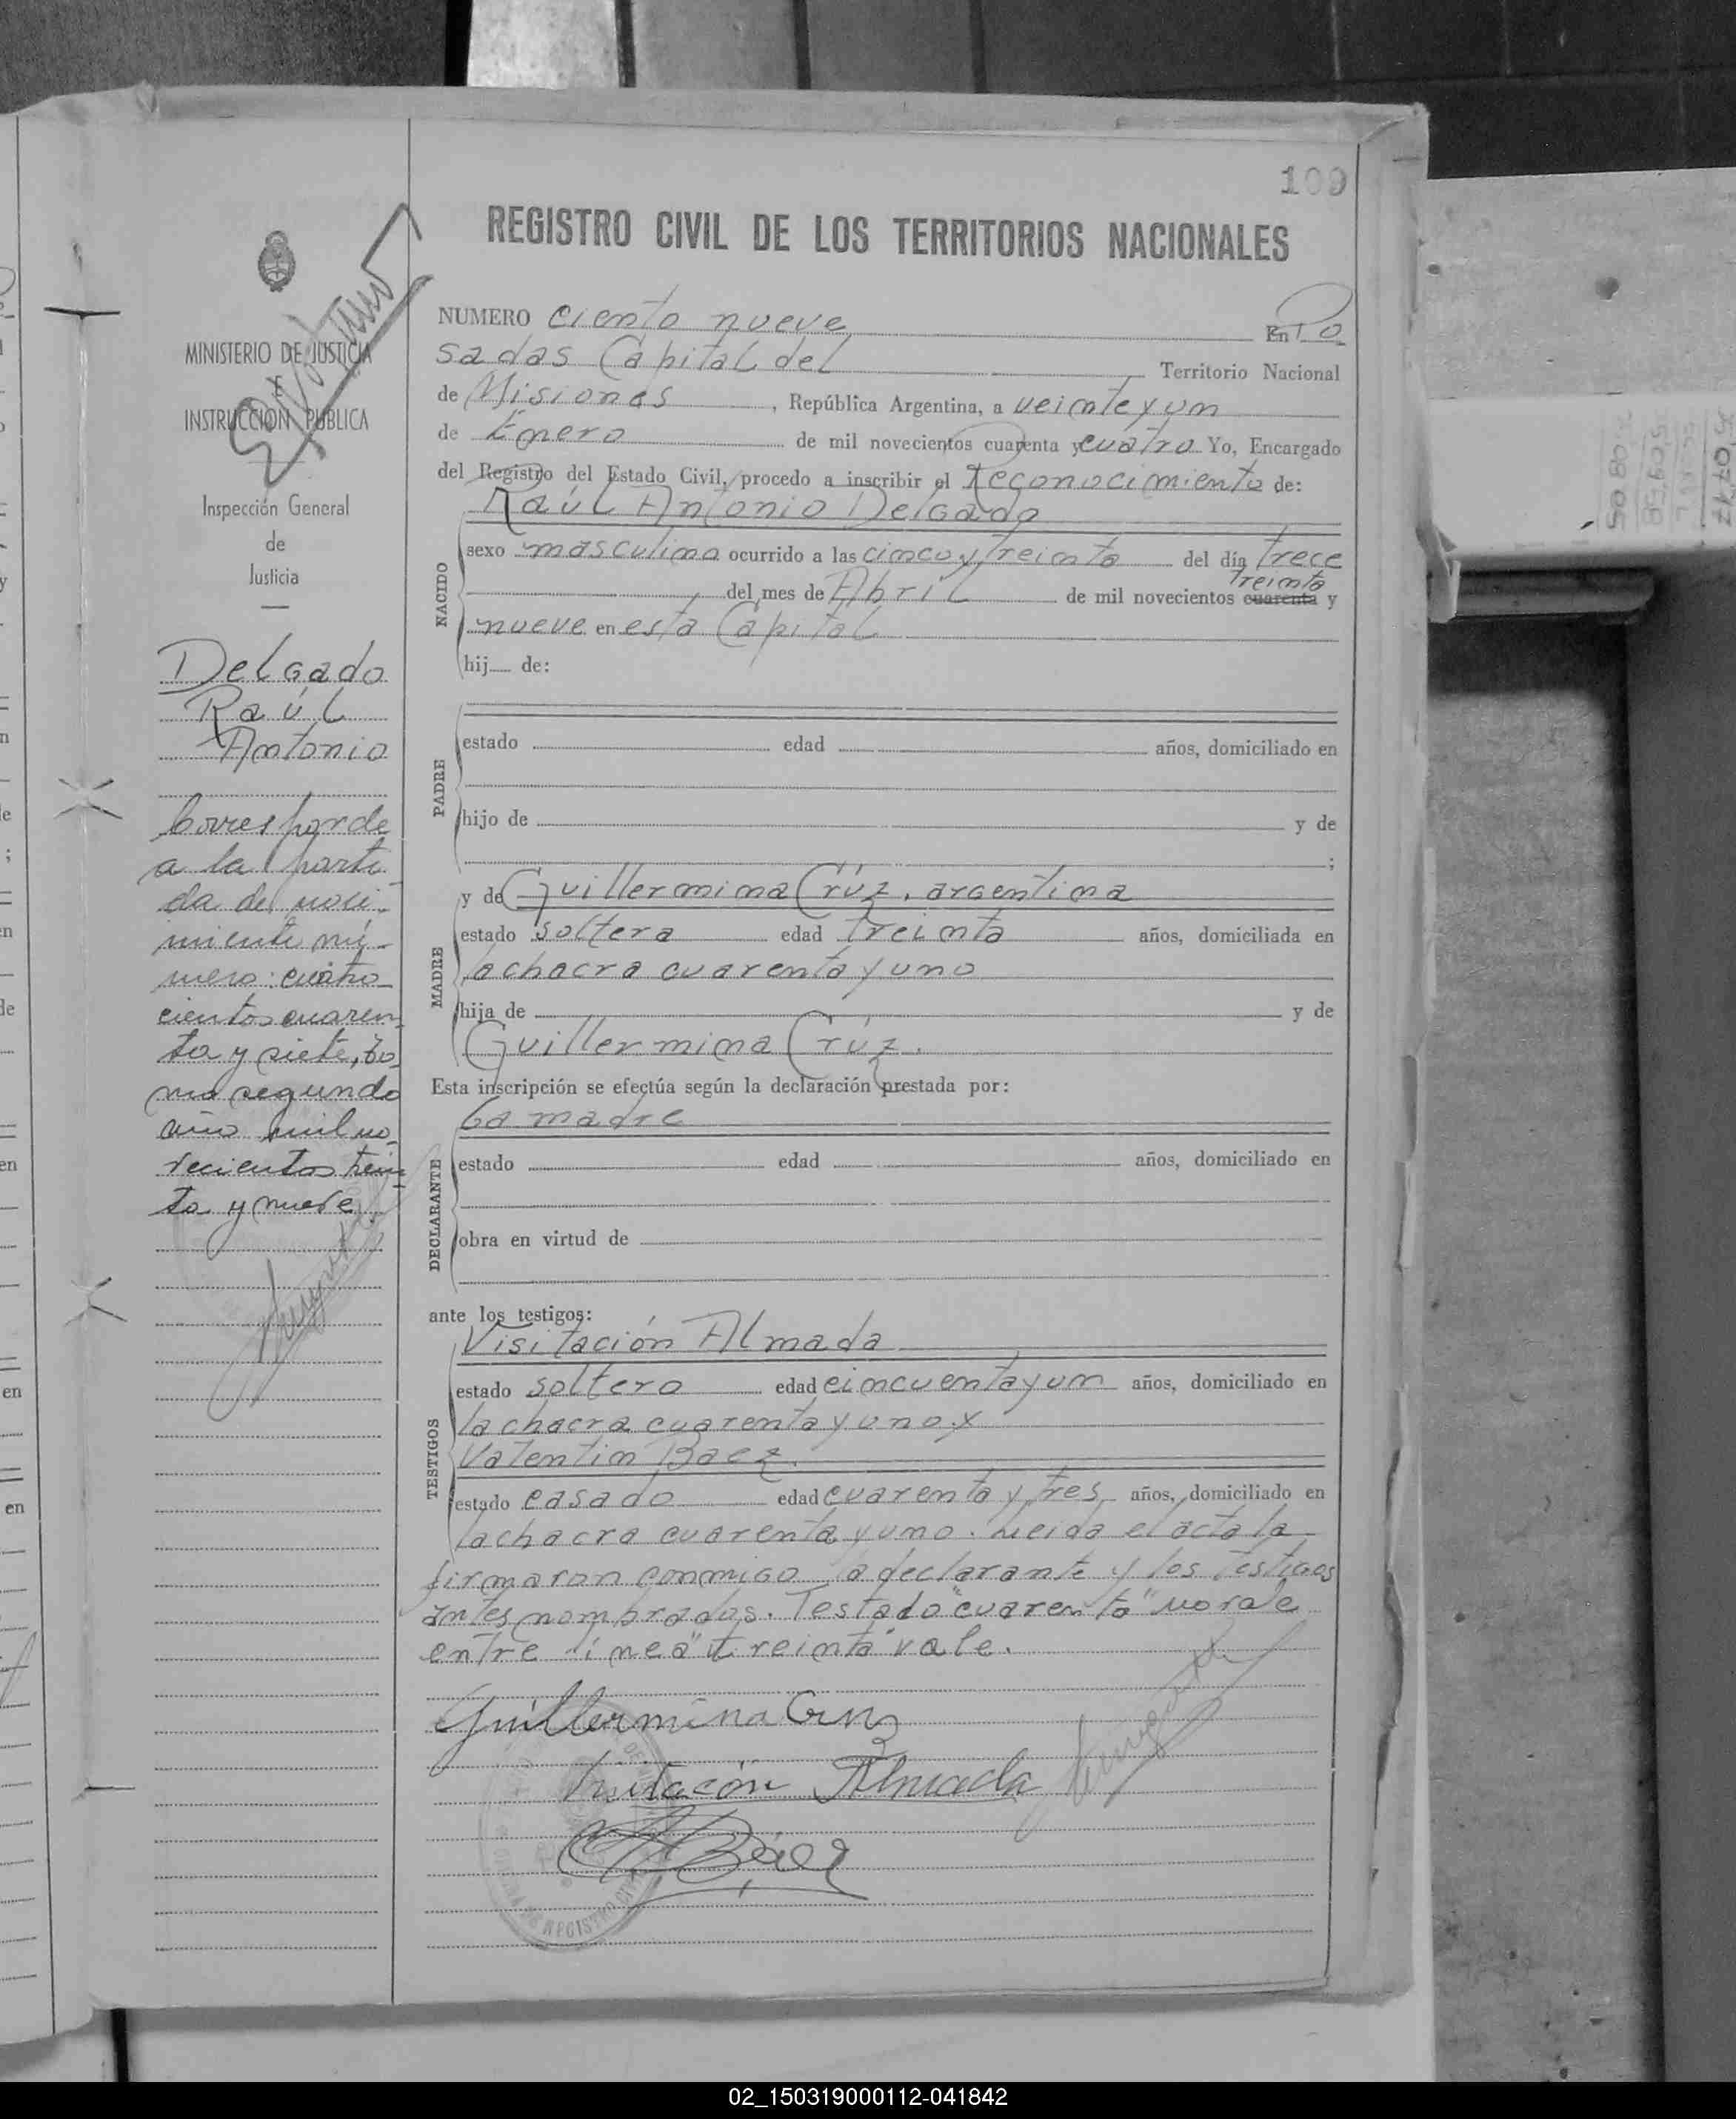 109
REGISTRO CIVIL DE LOS TERRITORIOS NACIONALES
MINISTERIO DE JUSTICIA
E
INSTRUCCIÓN PÚBLICA
Inspección General
de
Justicia
Delgado
Raúl
Antonio
Corresponde
a la parti-
da de naci-
miento nú-
mero: cuatro-
cientos cuaren-
ta y siete, to-
mo segundo
año mil no-
vecientos trein-
ta y nueve
NUMERO ciento nueve En Po
sadas Capital del Territorio Nacional
de Misiones, República Argentina, a veinte y un
de Enero de mil novecientos cuarenta y cuatro Yo, Encargado
del Registro del Estado Civil, procedo a inscribir el Reconocimiento de:
Raúl Antonio Delgado
NACIDO
sexo masculino ocurrido a las cinco y treinta del día trece
treinta
del mes de Abril de mil novecientos cuarenta y
nueve en esta Capital
hij de:
PADRE
estado edad años, domiciliado en
hijo de y de
;
MADRE
y de Guillermina Crúz, argentina
estado soltera edad treinta años, domiciliada en
la chacra cuarenta y uno
hija de y de
Guillermina Crúz.
Esta inscripción se efectúa según la declaración prestada por:
DECLARANTE
La madre
estado edad años, domiciliado en
obra en virtud de
ante los testigos:
TESTIGOS
Visitación Almada
estado soltero edad cincuenta y un años, domiciliado en
la chacra cuarenta y uno y
Valentin Baez.
estado casado edad cuarenta y tres años, domiciliado en
la chacra cuarenta y uno. Leida el acta la
firmaron conmigo la declarante y los testigos
antes nombrados. Testado "cuarenta" no vale
entre linea "treinta" vale.
Guillermina Cruz
Visitación Almada
Báez
REGISTRO CIVIL
50805
50958
50747
02_150319000112-041842